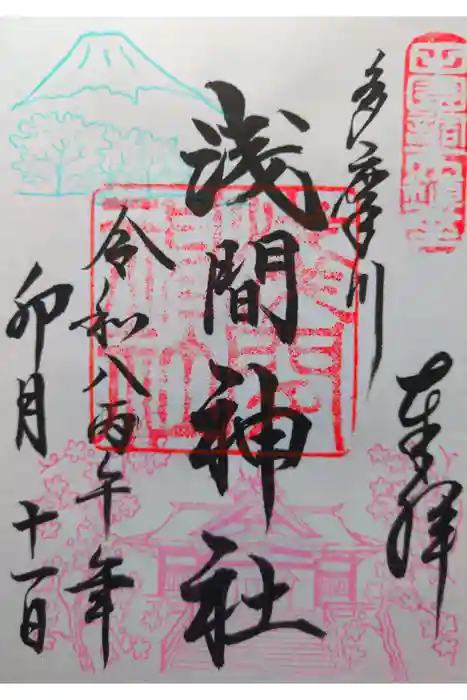 奉拝
多摩川
浅間神社
令和八丙午年
卯月
十一日